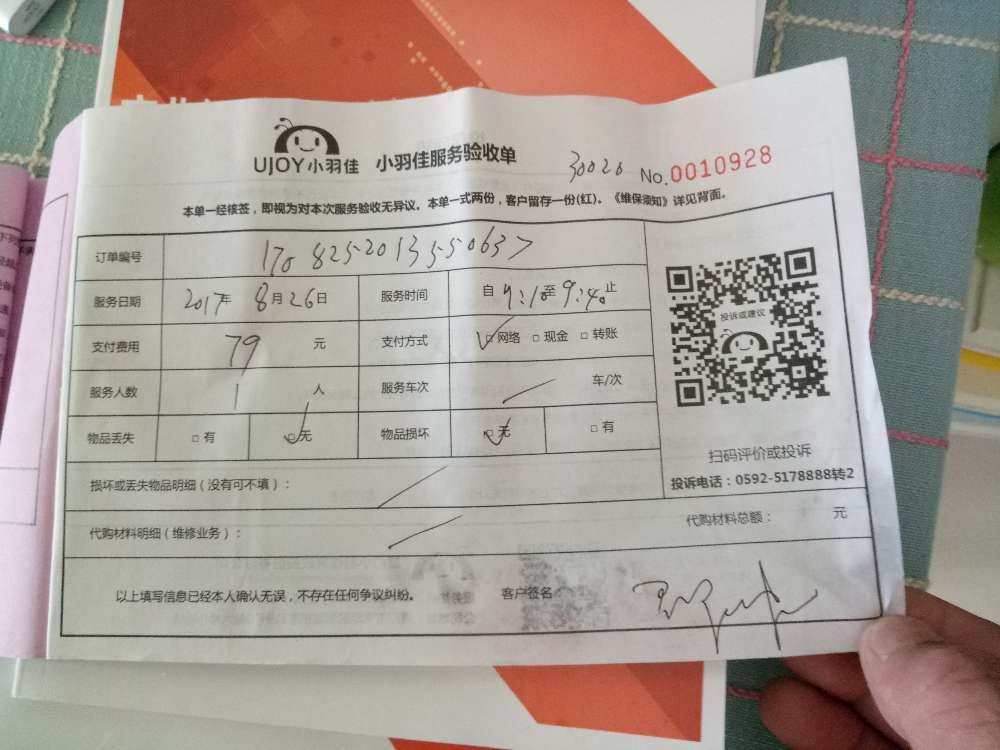 UJOY小羽佳 小羽佳服务验收单 30020 No.0010928
本单一经核签，即视为对本次服务验收无异议。本单一式两份，客户留存一份(红)。《维保须知》详见背面。
订单编号 1708252013550637
服务日期 2017年 8月26日 服务时间 自 9:10至 9:40止
支付费用 79 元 支付方式 ☑网络 □现金 □转账
服务人数 1 人 服务车次 / 车/次
物品丢失 □有 ☑无 物品损坏 ☑无 □有
损坏或丢失物品明细（没有可不填）： /
代购材料明细（维修业务）： / 代购材料总额： 元
以上填写信息已经本人确认无误，不存在任何争议纠纷。 客户签名：
投诉或建议
扫码评价或投诉
投诉电话：0592-5178888转2